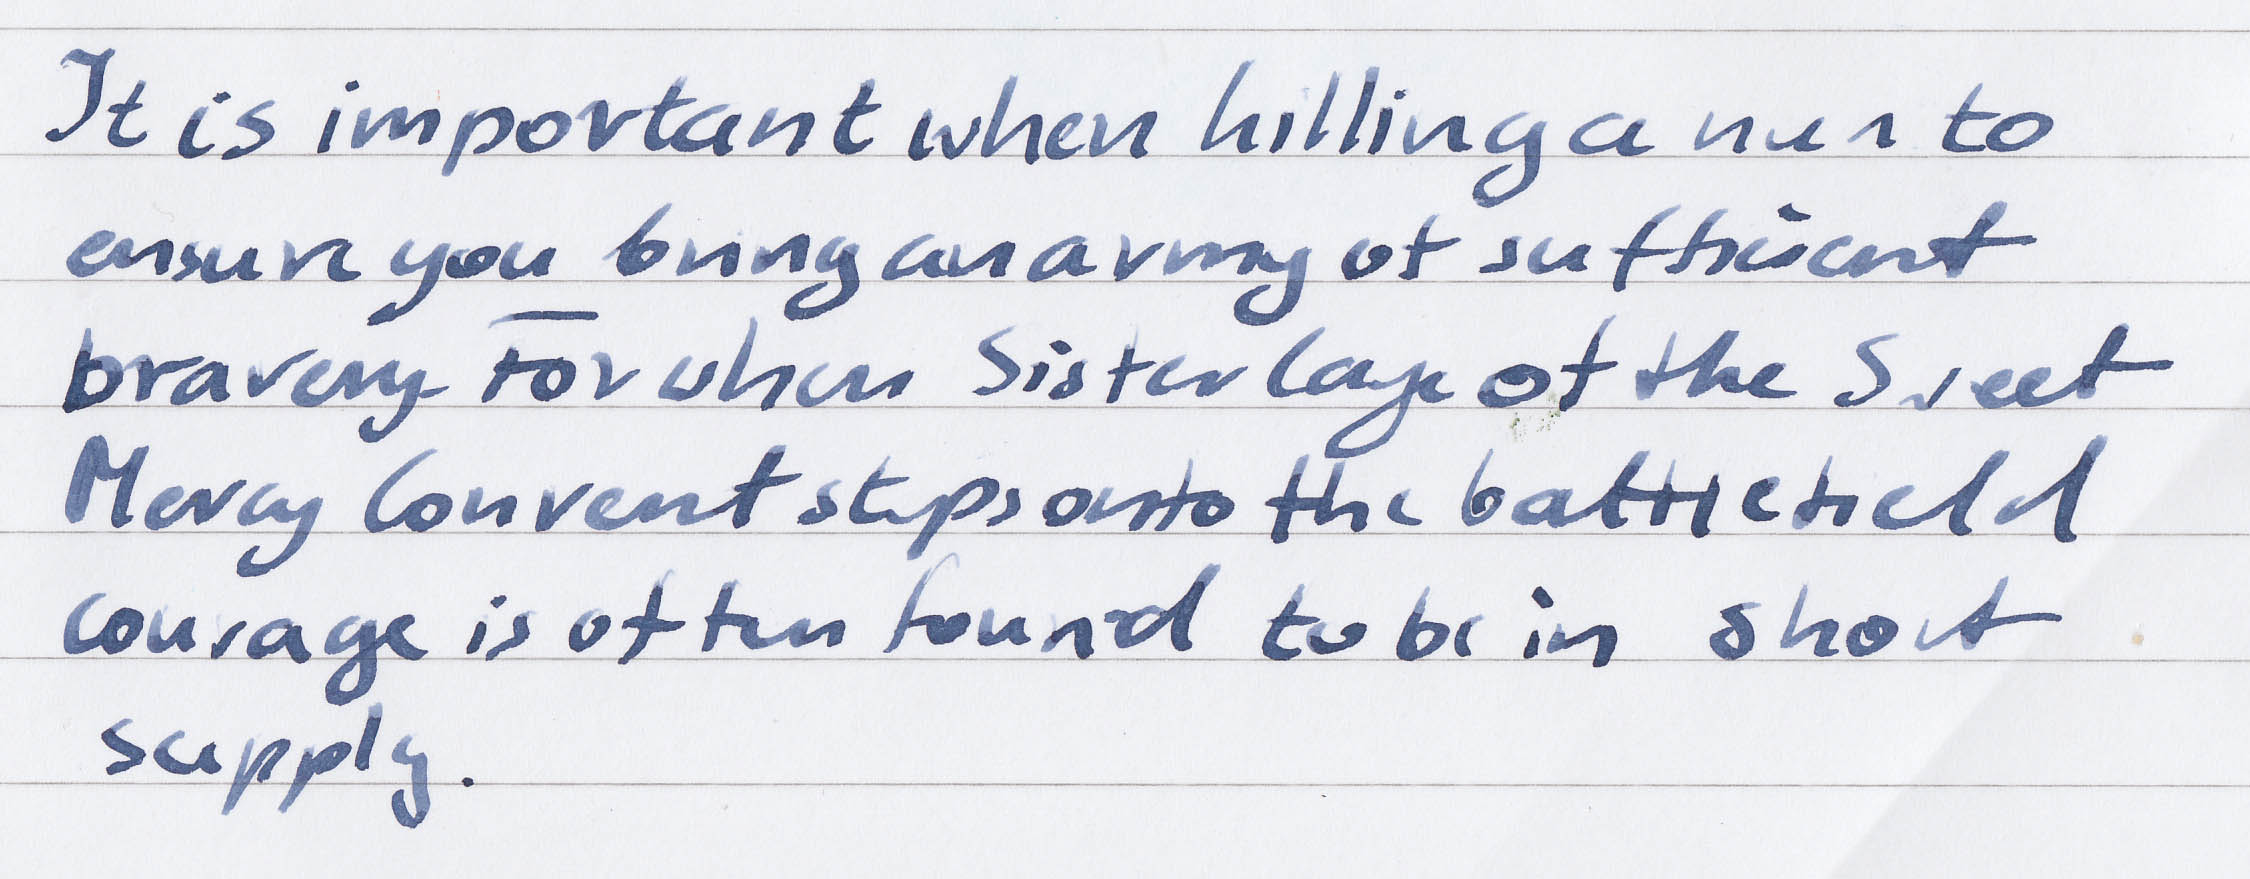 It is important when killing a nun to
ensure you bring an army of sufficient
bravery For when Sister Cage of the Sweet
Mercy Convent steps onto the battlefield
courage is often found to be in short
supply.